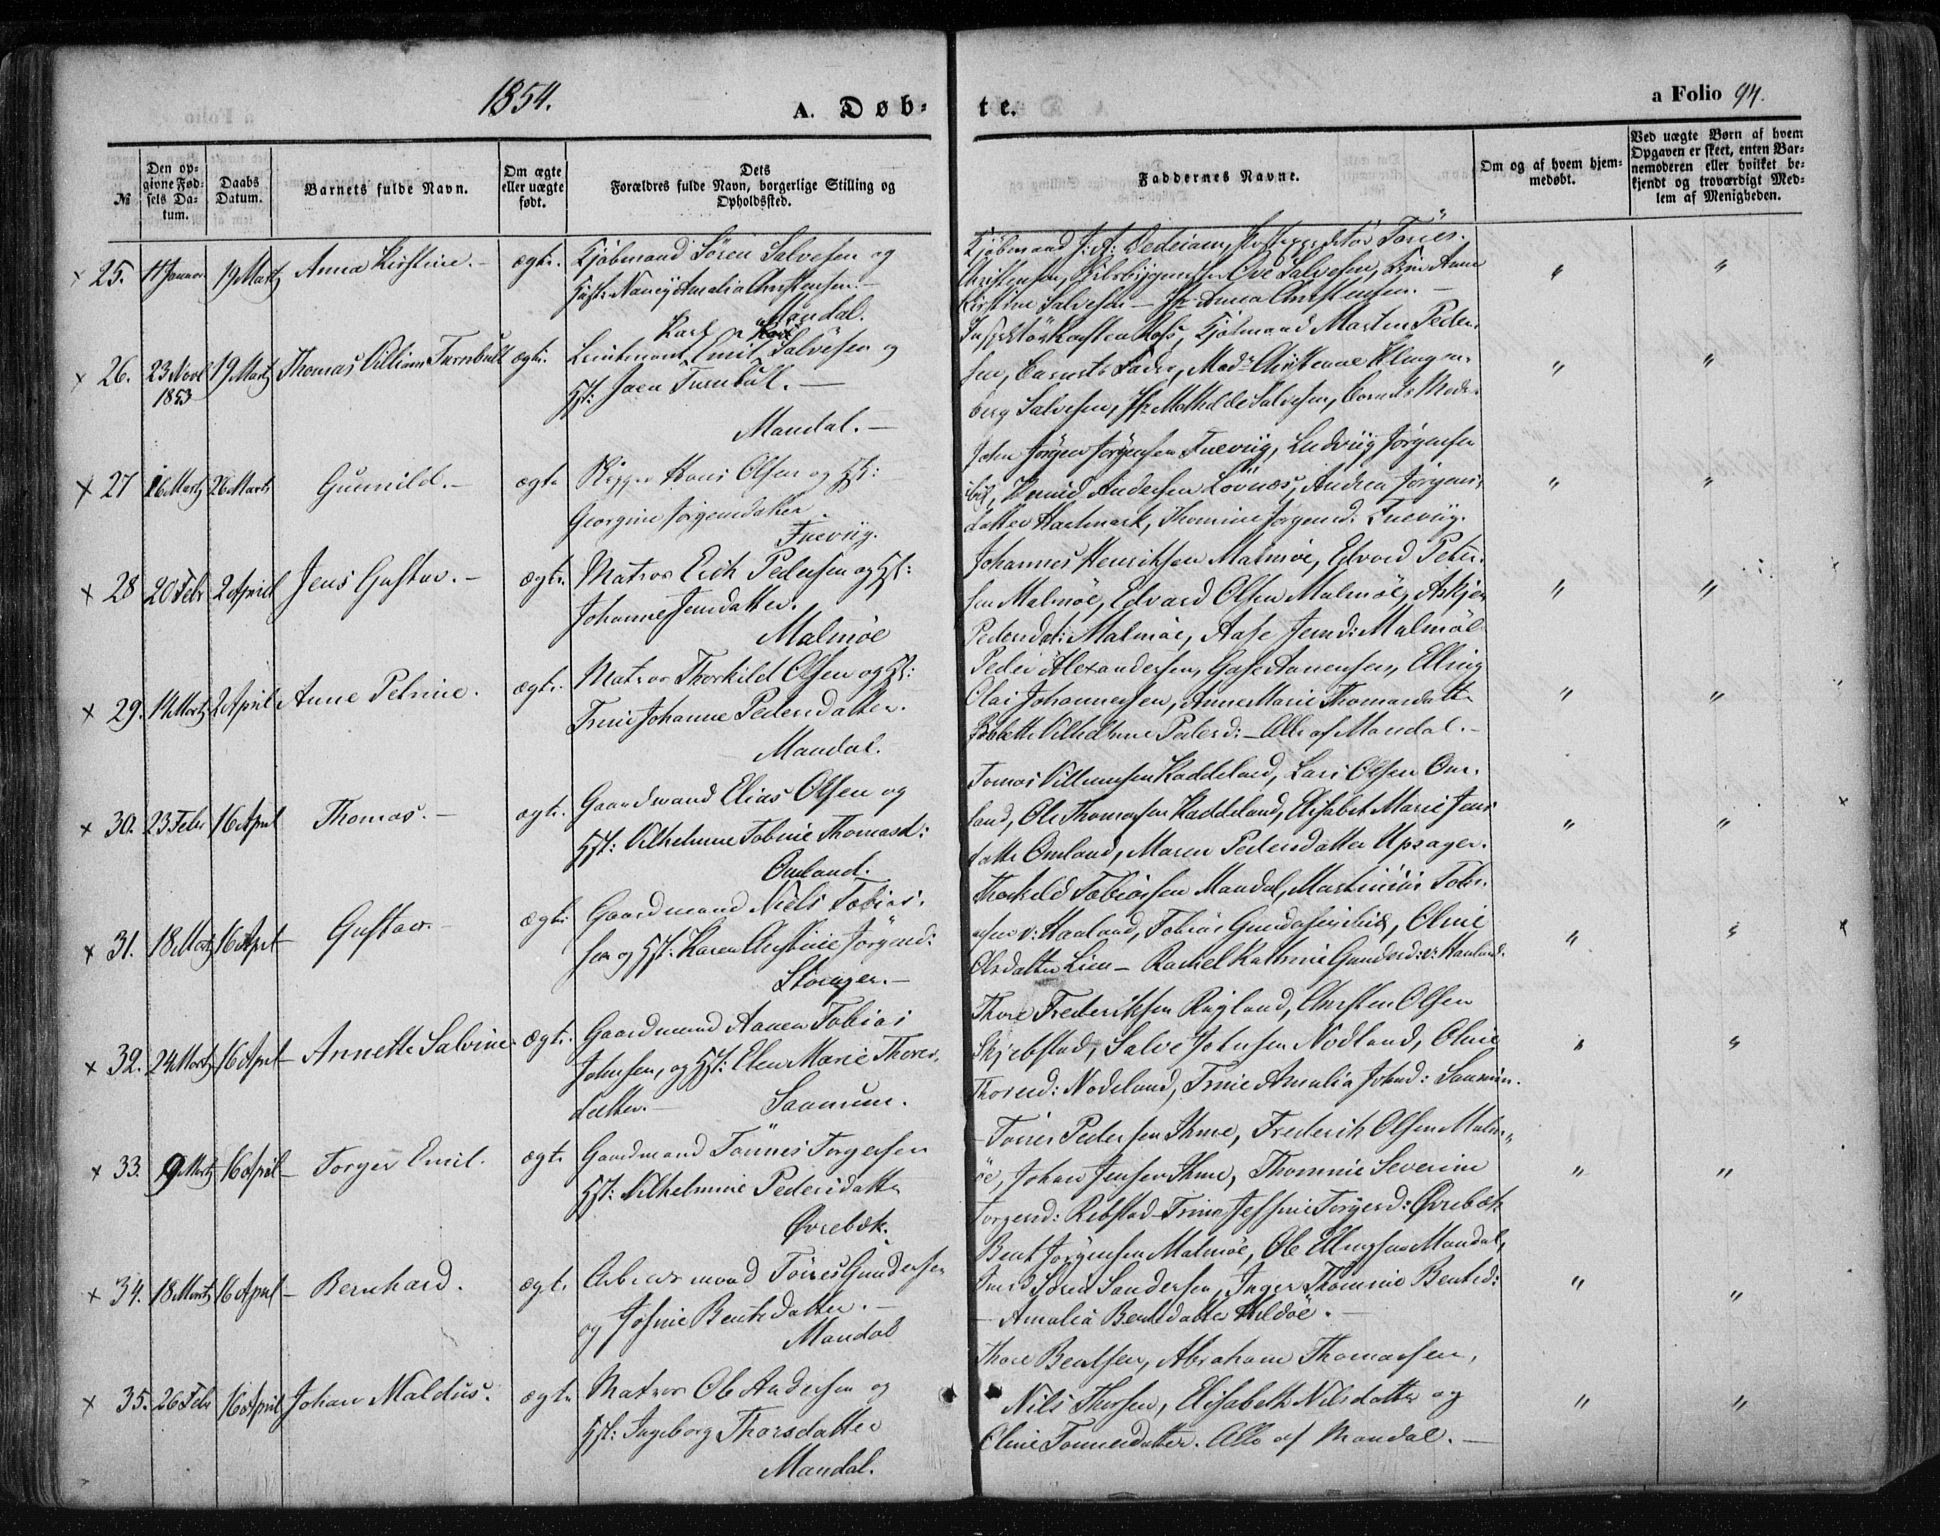 1854.
A. Døb-
te.
a Folio 94.
№
Den opgivne Fødsels Datum.
Daabs Datum.
Barnets fulde Navn.
Om ægte eller uægte født.
Dets Forældres fulde Navn, borgerlige Stilling og Opholdssted.
Faddernes Navne.
Om og af hvem hjemmedøbt.
Ved uægte Børn af hvem Opgaven er skeet, enten Barnemoderen eller hvilket bekjendt og troværdigt Medlem af Menigheden.
× 25. 11 Januar 19 Martz Anna Kirstine. — ægte. Kjøbmand Sören Salvesen og
Hust: Nancy Amalia Christensen. —
Mandal.
Christensen, Ove Salvesen, Anne
Kirstine Salvesen — Anna Christensen. —
" "
× 26. 23 Novb 1853 19 Martz Thomas Villiam Turnbull ægte. Karl
Lieutenant Emil Salvesen og
Hst: Jaen Turnbull. —
Mandal. —
Kjøbmand Morten Peder-
sen, Barnets Fader,
berg Salvesen, Mathilde Salvesen, Barnets Moder.
" "
× 27 16 Martz 26 Martz Gunnild. — ægte Skipper Hans Olsen og Hst:
Georgine Jörgensdatter
Jörgen Jörgensen Ludvig Jørgensen
Andersen Lövnæs, Andrea Jörgens-
datter Hartmark, Thomine Jörgensd:
" "
× 28 20 Febr 2 April Jens Gustav. — ægte. Matros Erik Pedersen og Hst:
Johanne Jensdatter.
Malmöe
Johannes Henriksen Malmöe, Edvard Peter-
sen Malmöe, Edvard Olsen Malmöe, Askjer
Pedersdat: Malmöe, Aase Jensd: Malmöe
" "
× 29. 14 Martz 2 April Anne Petrine. ægte. Matros Thorkild Olsen og Hst:
Trine Johanne Pedersdatter.
Mandal.
Peder Alexandersen, Aanensen, Elling
Olai Johannesen, Anne Marie Thomasdatter
Bolette Vilhelmine Pedersd: — Alle af Mandal. —
" "
× 30. 23 Febr 16 April Thomas. — ægte. Gaardmand Elias Olsen og
Hst: Vilhelmine Tobine Thomasd:
Omland.
Tomas Villumsen Haddeland, Lars Olsen Om-
land, Ole Thomassen Haddeland, Elisabet Marie Jens
datter Omland, Maren Pedersdatter Upsager.
" "
× 31. 18 Martz 16 April Gustav. — ægte: Gaardmand Niels Tobias-
sen og Hst: Karen Christine Jörgensd:
Thorkild Tobiassen Mandal,
v: Haaland, Tobias Oline
Olsdatter Lien — Rachel Kathrine Gundersd: v: Haaland.
" "
× 32. 24 Martz 16 April Annette Salvine. ægte. Gaardmand Aanen Tobias
Johnsen, og Hst: Elen Marie Thores-
datter. — Saanum.
Thore Frederiksen Rugland, Christen Olsen
Skjebstad, Salve Johnsen Nodland, Oline
Thoresd: Nodeland, Trine Amalia Johnsd: Saanum.
" "
× 33. 9 Martz 16 April Torger Emil. ægte Gaardmand Tönnes Torgersen
Hst: Vilhelmine Pedersdatter
Øvrebæk.
Tönnes Pedersen Frederik Olsen Malm-
öe, Johan Jensen Thomine Severine
Torgersd: Rebstad — Trine Torgersd: Øvrebæk
" "
× 34. 18 Martz 16 April Bernhard. ægte. Arbeidsmand Torres Gundersen
og Josine Bentsdatter. —
Mandal
Bent Jörgensen Malmöe, Ole Ellingsen Mandal,
Sören Sandersen, Inger Thomine Bentsd:
— Amalia Bentsdatter Hildöe. —
" "
× 35. 26 Febr 16 April Johan Maldus. ægte. Matros Ole Andersen og
Hst: Ingeborg Thorsdatter
Mandal.
Thore Bentsen, Abraham Thomassen,
Nils Thorsen, Elisabeth Nilsdatter og
Oline Tonnesdatter. Alle af Mandal. —
" "